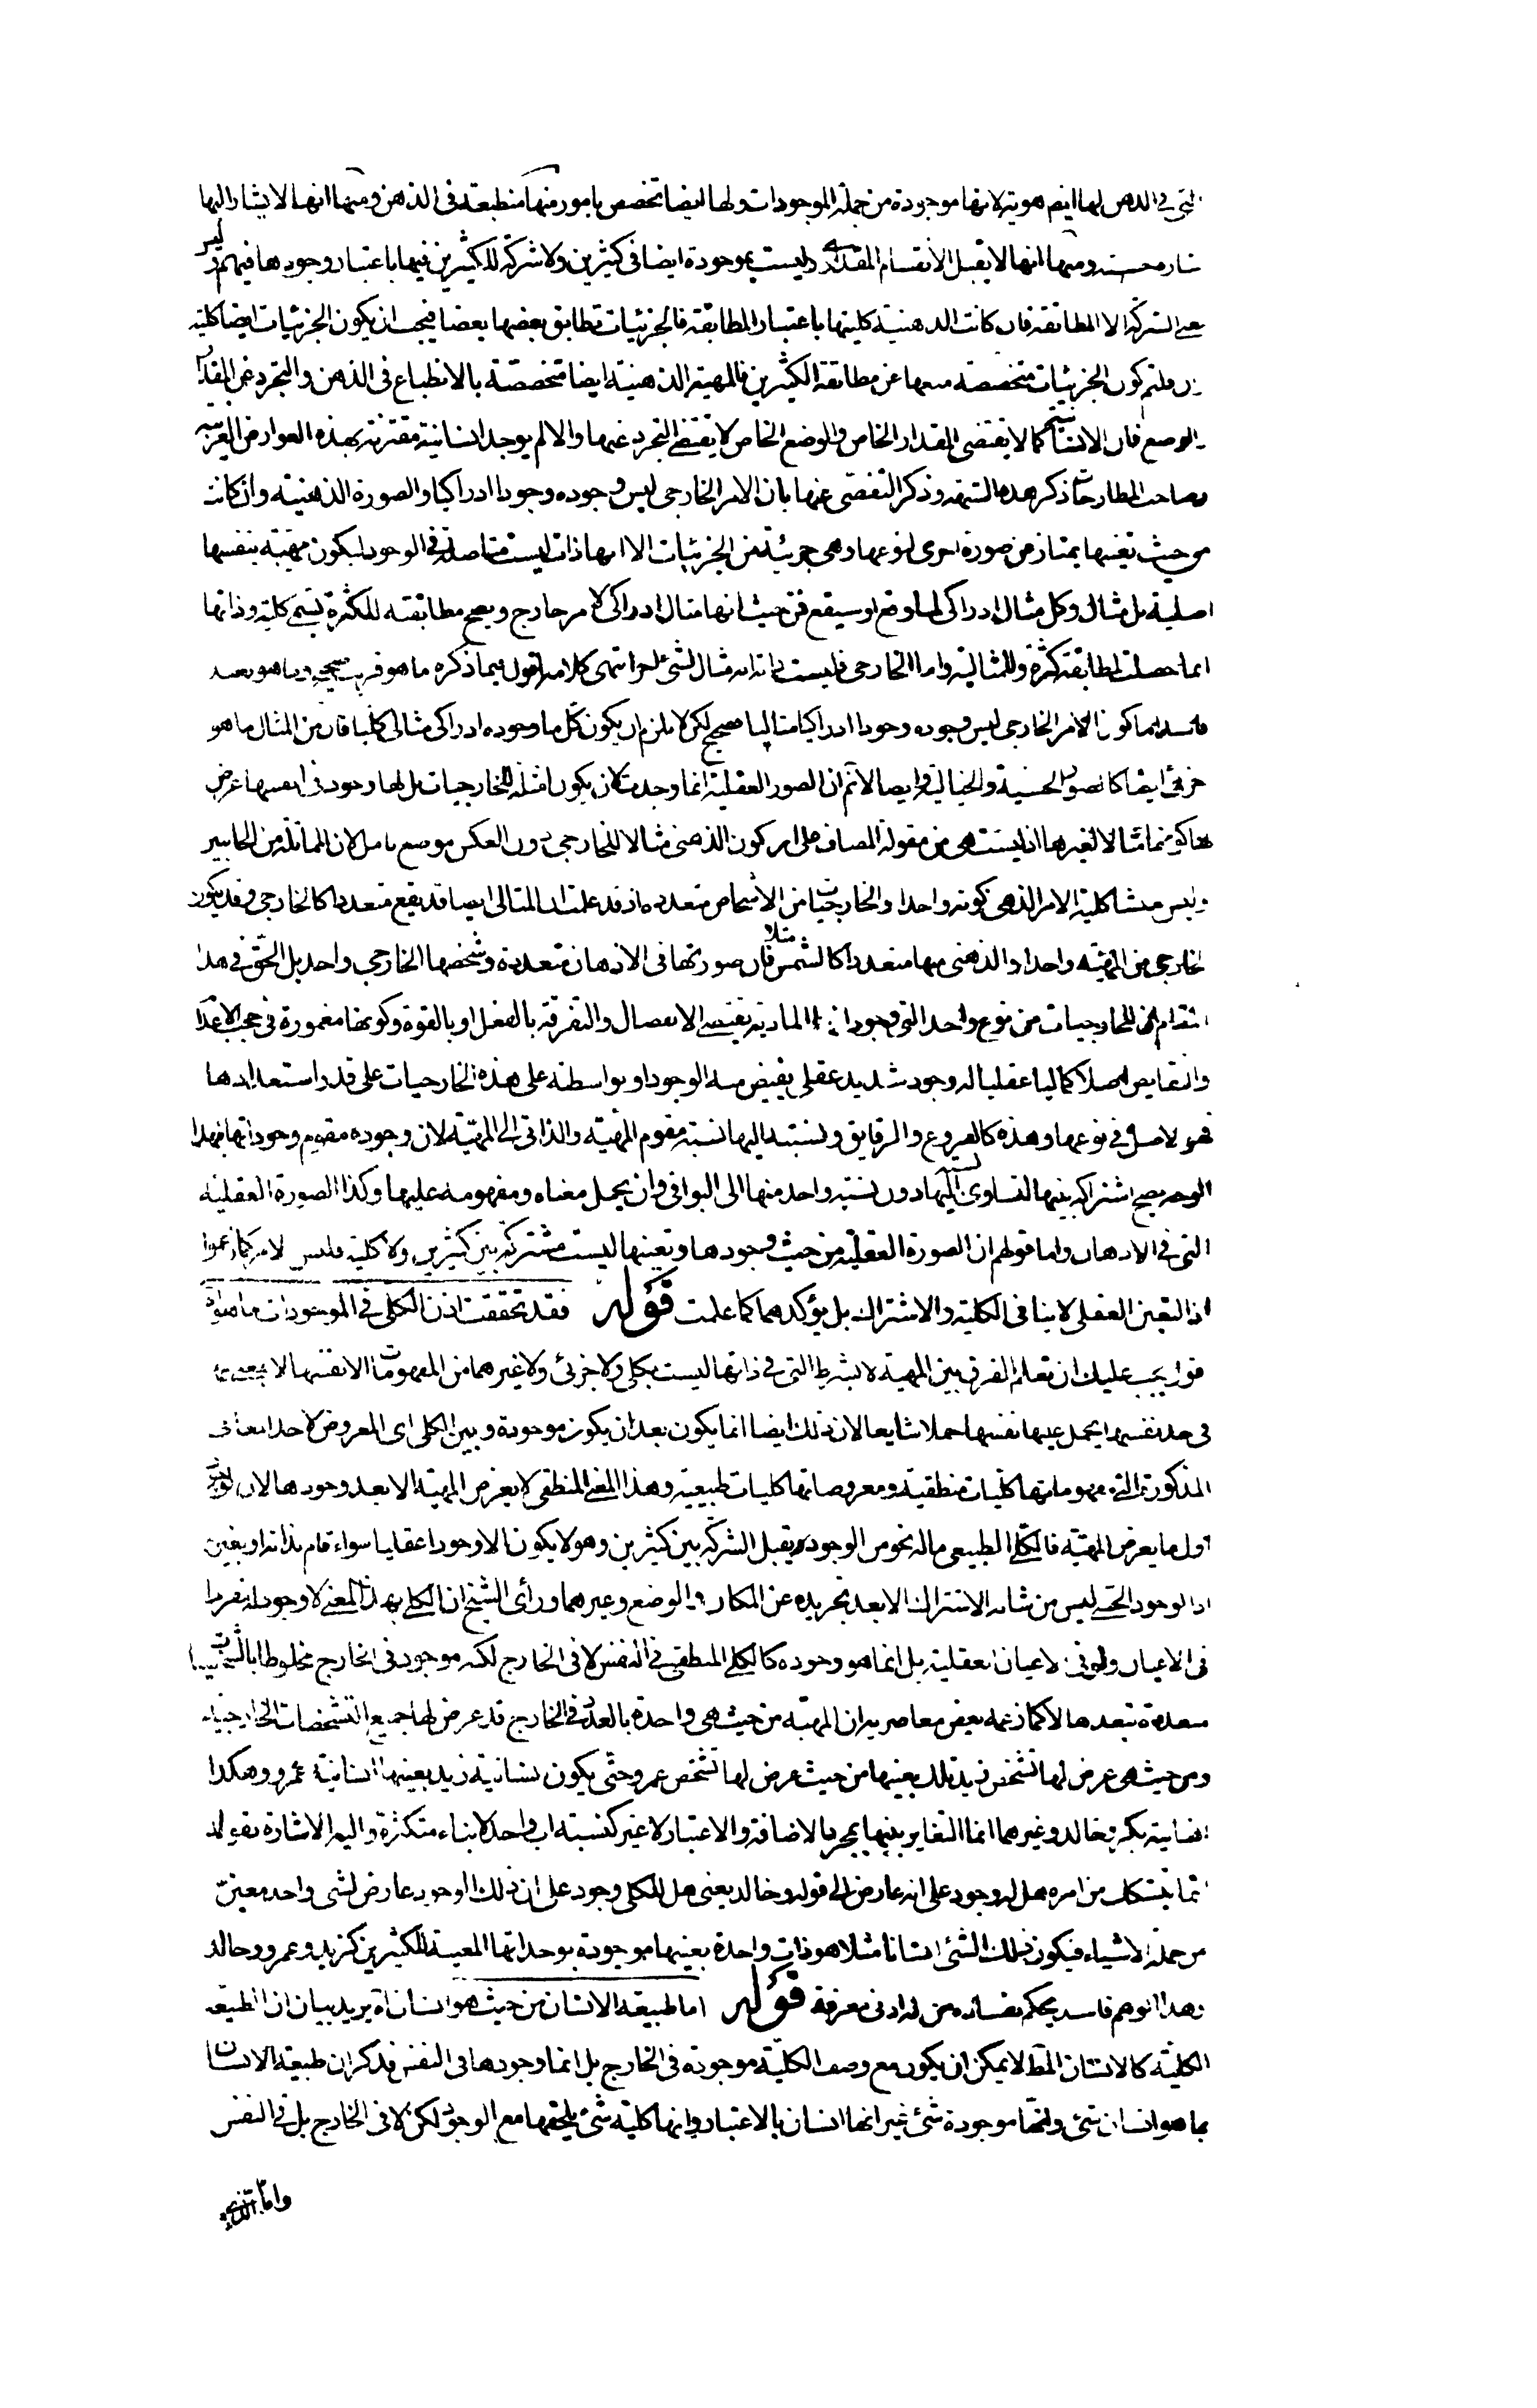 التى فى الذهن لها ايضم هوية لانها موجودة من جملة الموجودات ولها ايضا تخصص بامور منها كمنطبعة فى الذهن ومنها انها لا يشار اليها
اشارة حسية ومنها انها لا يقبل الانقسام المقدارى وليست بموجودة ايضا فى كثيرين ولا شركة للكثيرين فيها باعتبار وجودها فيهم اذ ليس
معنى الشركة الا المطابقة فان كانت الذهنية كليتها باعتبار المطابقة فالجزئيات تطابق بعضها بعضا فيجب ان يكون الجزئيات ايضا كلية
ان قلتم كون الجزئيات متخصصة منعها عن مطابقة الكثيرين فالمهية الذهنية ايضا متخصصة بالانطباع فى الذهن والتجرد عن المقدار
والوضع فان الانسانية كما لا يقتضى المقدار الخاص والوضع الخاص لا يقتضى التجرد عنها والا لم يوجد انسانية مقترنة بهذه العوارض الغريبة
وصاحب المطارحات ذكر هذه الشبهة وذكر التفصى عنها بان الامر الخارجى ليس وجوده وجودا ادراكيا والصورة الذهنية وان كانت
من حيث تعينها يمتاز من صورة اخرى لنوعها وهى جزئية من الجزئيات الا انها ذات ليست متاصلة فى الوجود ليكون مهية بنفسها
اصلية بل مثال وكل مثال ادراكى لما وقع او سيقع فمن حيث انها مثال ادراكى لامر خارج ويصح مطابقته للكثرة يسمى كلية وذاتها
انما حصلت لمطابقة كثرة وللمثالية واما الخارجى فليست ذاته انه مثال لشئ اخر انتهى كلامه اقول فيما ذكره ما هو قريب صحيح وما هو بعيد
فاسد اما كون الامر الخارجى ليس وجوده وجودا ادراكيا مثاليا صحيح لكن لا يلزم ان يكون كل ما وجوده ادراكى مثالى كليا فان من المثال ما هو
جزئى ايضا كالصور الحسية والخيالية وايضا لا نم ان الصور العقلية انما وجدت لان يكون امثلة للخارجيات بل لها وجود فى انفسها عرض
لها كونها مثالا لغيرها اذ ليست هى من مقولة المضاف على ان كون الذهنى مثالا للخارجى دون العكس موضع تامل لان المماثلة من الجانبين
وليس منشا كلية الامر الذهنى كونه واحدا والخارجيات من الاشخاص متعددة اذ قد علمت ان المثالى ايضا قد يقع متعددا كالخارجى وقد يكون
الخارجى من المهية واحدا والذهنى منها متعددا كالشمس مثلا فان صورتها فى الاذهان متعددة وشخصها الخارجى واحد بل الحق فى هذا
المقام ان للخارجيات من نوع واحد التى وجوداتها المادية يقتضى الانفصال والتفرقة بالفعل او بالقوة وكونها مغمورة فى حجب الاعدام
والنقايص اصلا كماليا عقليا له وجود شديد عقلى يفيض منه الوجود او بواسطته على هذه الخارجيات على قدر استعدادها
فهو الاصل فى نوعها وهذه كالفروع والرقايق ونسبته اليها نسبة مقوم المهية والذاتى الى المهية لان وجوده مقوم وجوداتها فبهذا
الوجه يصح اشتراكه بينها لتساوى نسبته اليها دون نسبة واحد منها الى البواقى وان يحمل معناه ومفهومه عليها وكذا الصورة العقلية
التى فى الاذهان واما قولهم ان الصورة العقلية من حيث وجودها وتعينها ليست مشتركة بين كثيرين ولا كلية فليس الامر كما زعموا
اذ التعين العقلى لا ينافى الكلية والاشتراك بل يؤكدهما كما علمت قوله فقد تحققت اذن ان الكلى فى الموجودات ما هو اه
قول يجب عليك ان تعلم الفرق بين المهية لا بشرط التى فى ذاتها ليست بكلى ولا جزئى ولا غيرهما من المفهومات الا نفسها لا بمعنى انها
فى حد نفسها يحمل عليها نفسها حملا شايعا لان ذلك ايضا انما يكون بعد ان يكون موجودة وبين الكلى اى المعروض لاحد المعانى
المذكورة التى مفهوماتها كليات منطقية ومعروضاتها كليات طبيعية وهذا المعنى المنطقى لا يعرض المهية الا بعد وجودها لان الوجود
اول ما يعرض المهية فالكلى الطبيعى ماله نحو من الوجود يقبل الشركة بين كثيرين وهو لا يكون الا وجودا عقليا سواء قام بذاته او بغيره
اذ الوجود الحسى ليس من شانه الاشتراك الا بعد تجريده عن المكان والوضع وغيرهما وراى الشيخ ان الكلى بهذا المعنى لا وجود له منفردا
فى الاعيان ولو فى الاعيان العقلية بل انما هو وجوده كالكلى المنطقى فى النفس لا فى الخارج لكنه موجود فى الخارج مخلوطا بالشخصيات
متعددة بتعددها لا كما زعمه بعض معاصريه ان المهية من حيث هى واحدة بالعدد فى الخارج قد عرض لها جميع التشخصات الخارجية
ومن حيث هى عرض لها تشخص زيد تلك بعينها من حيث عرض لها تشخص عمرو حتى يكون انسانية زيد بعينها انسانية عمرو وهكذا
انسانية بكر وخالد وغيرهما انما التغاير بينها بمجرد الاضافة والاعتبار لا غير كنسبة اب واحد لابناء متكثرة واليه الاشارة بقوله
انما يتشكك من امره هل له وجود على انه عارض الى قوله وخالد يعنى هل للكلى وجود على ان ذلك الوجود عارض لشى واحد معين
من جملة الاشياء فيكون ذلك الشئ انسانا مثلا هو ذات واحدة بعينها موجودة بوحدتها المعينة للكثيرين كزيد وعمرو وخالد
وهذا الوهم فاسد يحكم بفساده من له ادنى معرفة قوله اما طبيعة الانسان من حيث هو انسان اه يريد بيان ان الطبيعة
الكلية كالانسان المط لا يمكن ان يكون مع وصف الكلية موجودة فى الخارج بل انما وجودها فى النفس فذكر ان طبيعة الانسان
بما هو انسان شئ وانها موجودة شئ غير انها انسان بالاعتبار وانها كلية شئ يلحقها مع الوجود لكن لا فى الخارج بل فى النفس
واما